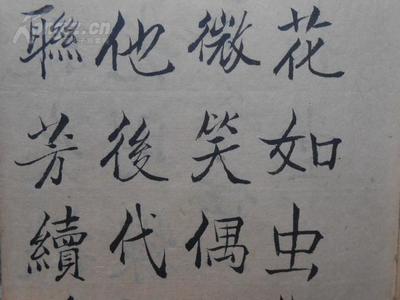 花如虫
微笑偶
他後代
聯芳續